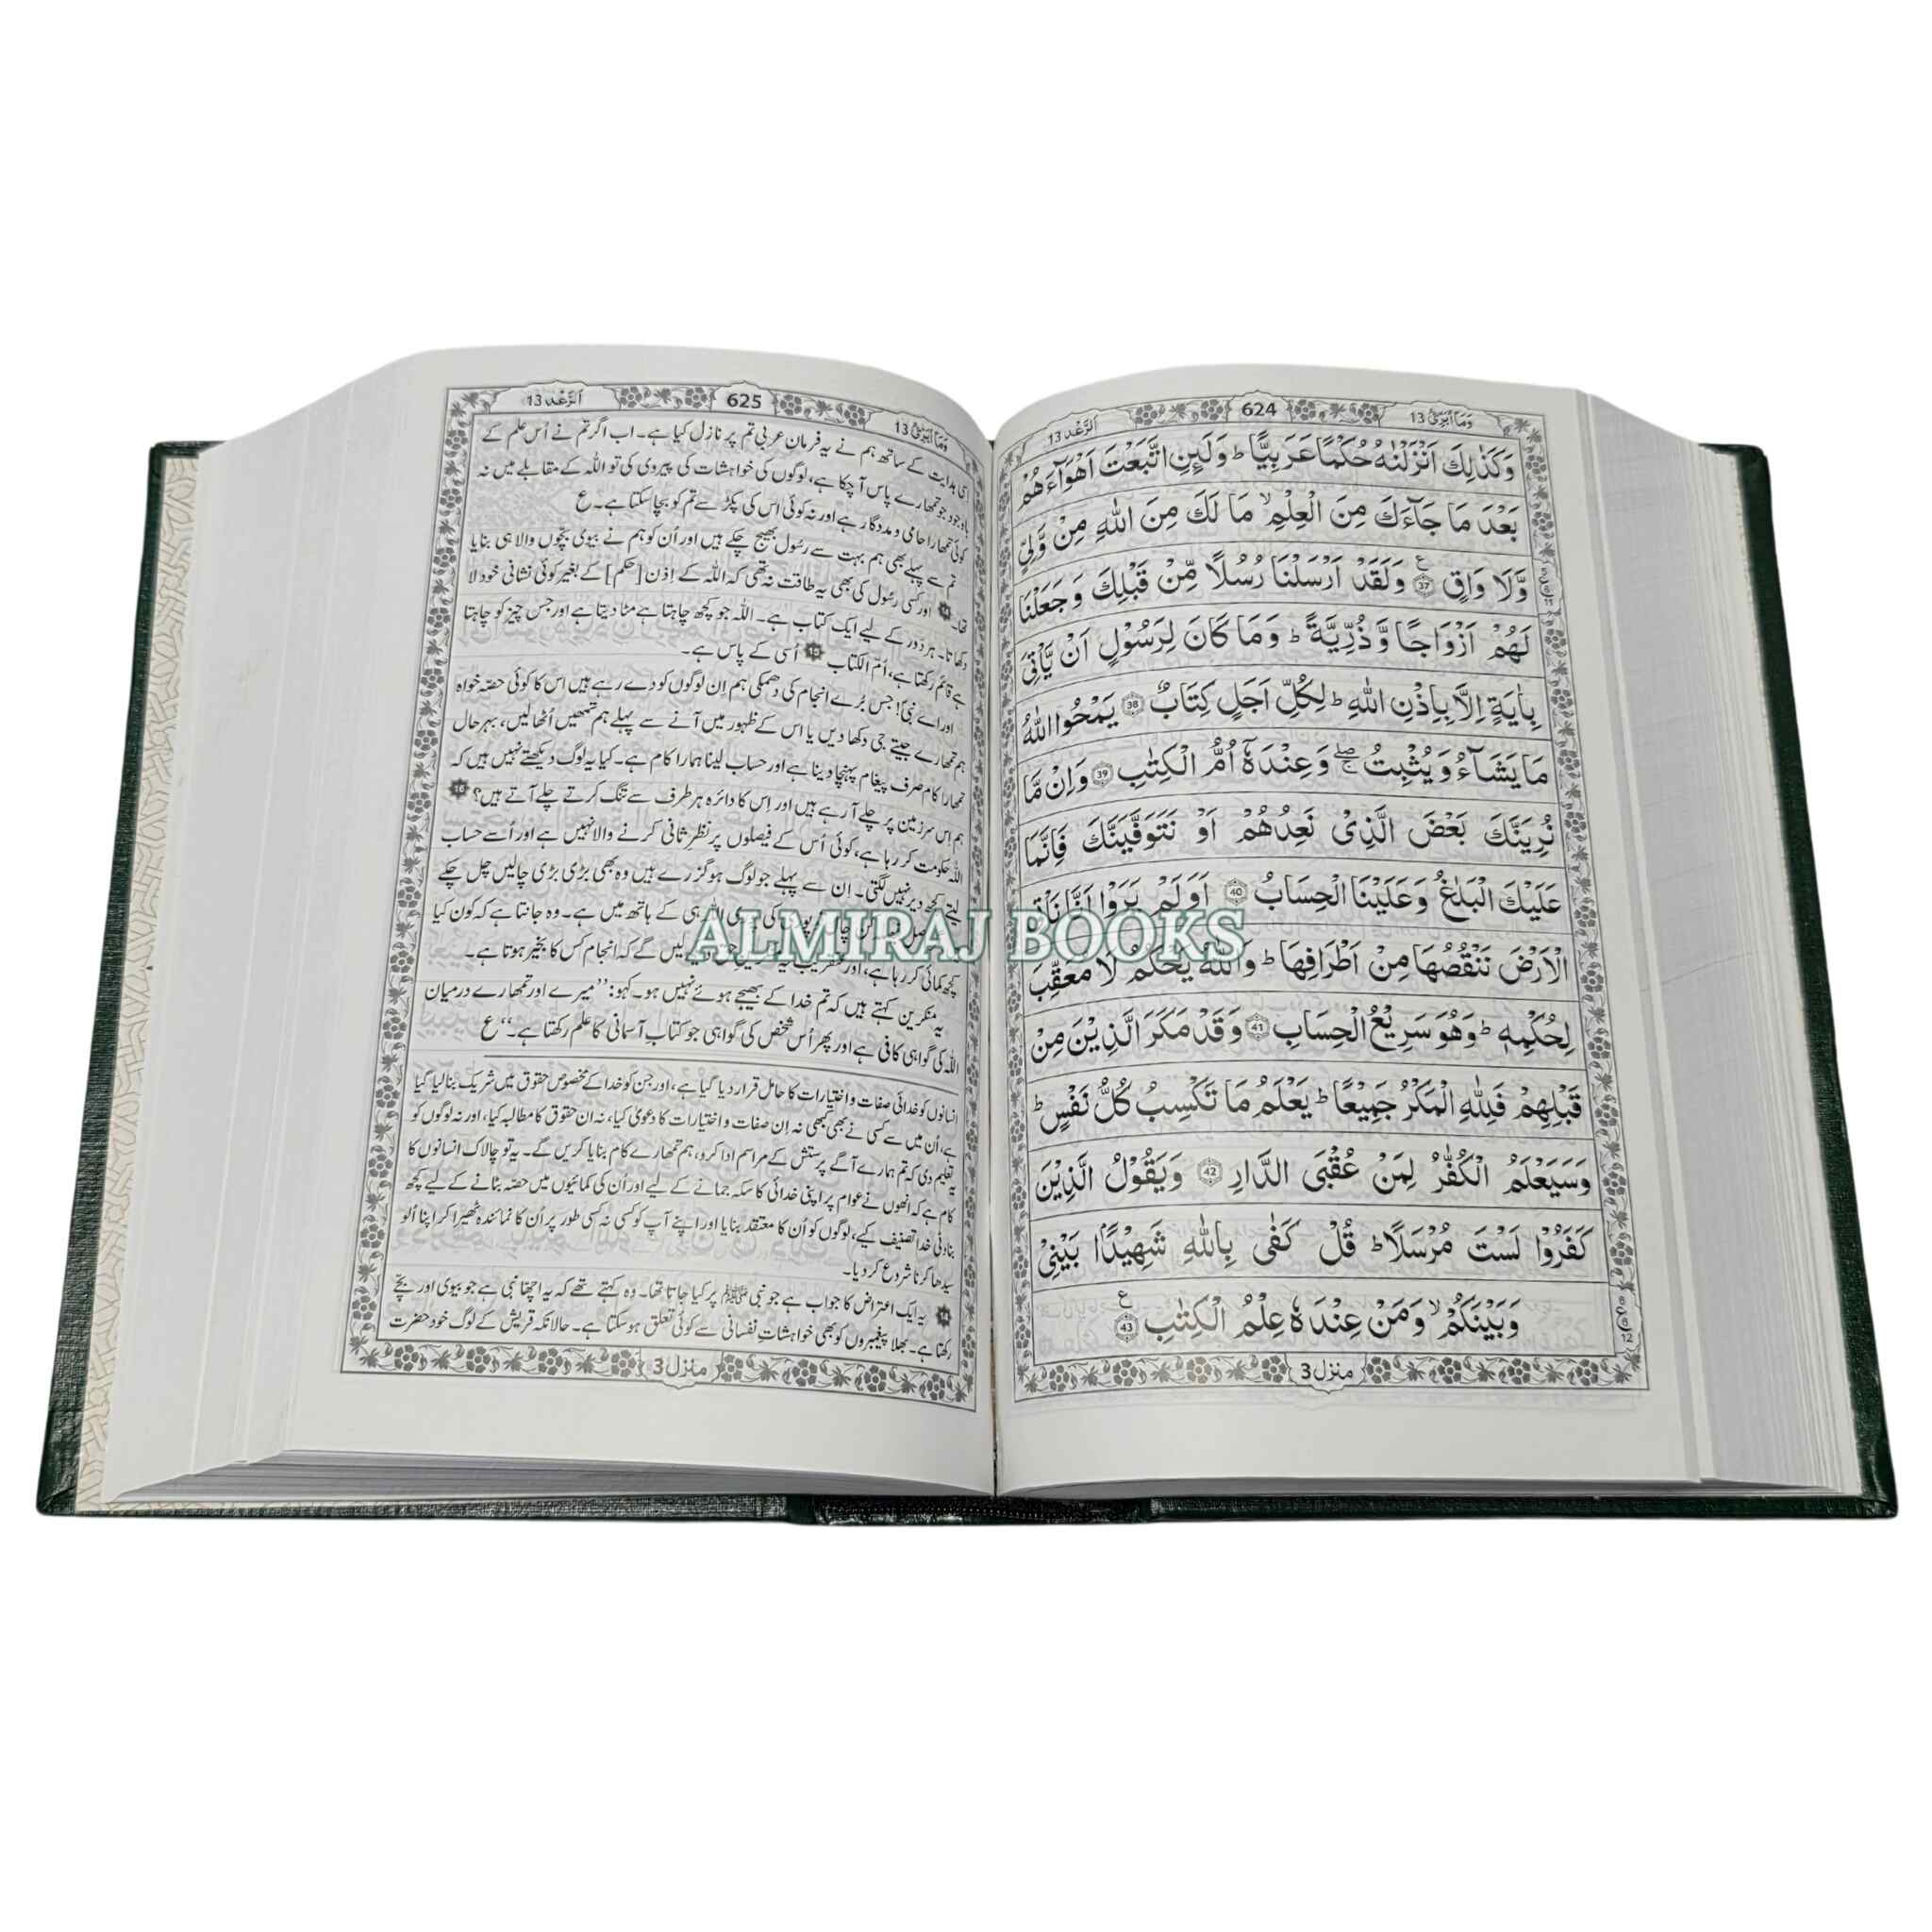 اَلرَّعْد 13
624
وَمَاۤ اُبَرِّئُ 13
وَكَذٰلِكَ اَنْزَلْنٰهُ حُكْمًا عَرَبِيًّا ؕ وَلَئِنِ اتَّبَعْتَ اَهْوَآءَهُمْ
بَعْدَ مَا جَآءَكَ مِنَ الْعِلْمِ ۙ مَا لَكَ مِنَ اللّٰهِ مِنْ وَّلِيٍّ
وَّلَا وَاقٍ ﴿37﴾ وَلَقَدْ اَرْسَلْنَا رُسُلًا مِّنْ قَبْلِكَ وَجَعَلْنَا
لَهُمْ اَزْوَاجًا وَّذُرِّيَّةً ؕ وَمَا كَانَ لِرَسُوْلٍ اَنْ يَّاْتِيَ
بِاٰيَةٍ اِلَّا بِاِذْنِ اللّٰهِ ؕ لِكُلِّ اَجَلٍ كِتَابٌ ﴿38﴾ يَمْحُوا اللّٰهُ
مَا يَشَآءُ وَيُثْبِتُ ۖۚ وَعِنْدَهٗۤ اُمُّ الْكِتٰبِ ﴿39﴾ وَاِنْ مَّا
نُرِيَنَّكَ بَعْضَ الَّذِيْ نَعِدُهُمْ اَوْ نَتَوَفَّيَنَّكَ فَاِنَّمَا
عَلَيْكَ الْبَلٰغُ وَعَلَيْنَا الْحِسَابُ ﴿40﴾ اَوَلَمْ يَرَوْا اَنَّا نَاْتِي
الْاَرْضَ نَنْقُصُهَا مِنْ اَطْرَافِهَا ؕ وَاللّٰهُ يَحْكُمُ لَا مُعَقِّبَ
لِحُكْمِهٖ ؕ وَهُوَ سَرِيْعُ الْحِسَابِ ﴿41﴾ وَقَدْ مَكَرَ الَّذِيْنَ مِنْ
قَبْلِهِمْ فَلِلّٰهِ الْمَكْرُ جَمِيْعًا ؕ يَعْلَمُ مَا تَكْسِبُ كُلُّ نَفْسٍ ؕ
وَسَيَعْلَمُ الْكُفّٰرُ لِمَنْ عُقْبَى الدَّارِ ﴿42﴾ وَيَقُوْلُ الَّذِيْنَ
كَفَرُوْا لَسْتَ مُرْسَلًا ؕ قُلْ كَفٰى بِاللّٰهِ شَهِيْدًۢا بَيْنِيْ
وَبَيْنَكُمْ ۙ وَمَنْ عِنْدَهٗ عِلْمُ الْكِتٰبِ ﴿43﴾
منزل 3
اَلرَّعْد 13
625
وَمَاۤ اُبَرِّئُ 13
اسی ہدایت کے ساتھ ہم نے یہ فرمانِ عربی تم پر نازل کیا ہے۔ اب اگر تم نے اُس علم کے
باوجود جو تمھارے پاس آ چکا ہے، لوگوں کی خواہشات کی پیروی کی تو اللہ کے مقابلے میں نہ
کوئی تمھارا حامی و مددگار ہے اور نہ کوئی اس کی پکڑ سے تم کو بچا سکتا ہے۔ ع
تم سے پہلے بھی ہم بہت سے رسُول بھیج چکے ہیں اور اُن کو ہم نے بیوی بچّوں والا ہی بنایا
تھا۔ اور کسی رسُول کی بھی یہ طاقت نہ تھی کہ اللہ کے اِذن [حکم] کے بغیر کوئی نشانی خود لا
دکھاتا۔ ہر دَور کے لیے ایک کتاب ہے۔ اللہ جو کچھ چاہتا ہے مٹا دیتا ہے اور جس چیز کو چاہتا
ہے قائم رکھتا ہے، اُم الکتاب 15 اُسی کے پاس ہے۔
اور اے نبیؐ! جس بُرے انجام کی دھمکی ہم اِن لوگوں کو دے رہے ہیں اس کا کوئی حصّہ خواہ
ہم تمھارے جیتے جی دکھا دیں یا اس کے ظہور میں آنے سے پہلے ہم تمھیں اُٹھا لیں، بہرحال
تمھارا کام صرف پیغام پہنچا دینا ہے اور حساب لینا ہمارا کام ہے۔ کیا یہ لوگ دیکھتے نہیں ہیں کہ
ہم اِس سرزمین پر چلے آ رہے ہیں اور اِس کا دائرہ ہر طرف سے تنگ کرتے چلے آتے ہیں؟ 16
اللہ حکومت کر رہا ہے، کوئی اُس کے فیصلوں پر نظر ثانی کرنے والا نہیں ہے اور اُسے حساب
لیتے کچھ دیر نہیں لگتی۔ اِن سے پہلے جو لوگ ہو گزرے ہیں وہ بھی بڑی بڑی چالیں چل چکے
اللہ ہی کے ہاتھ میں ہے۔ وہ جانتا ہے کہ کون کیا
کچھ کمائی کر رہا ہے، اور گے کہ انجام کس کا بخیر ہوتا ہے۔
یہ منکرین کہتے ہیں کہ تم خدا کے بھیجے ہوئے نہیں ہو۔ کہو: ’’میرے اور تمھارے درمیان
اللہ کی گواہی کافی ہے اور پھر اُس شخص کی گواہی جو کتابِ آسمانی کا علم رکھتا ہے۔‘‘ ع
انسانوں کو خدائی صفات و اختیارات کا حامل قرار دیا گیا ہے، اور جن کو خدا کے مخصوص حقوق میں شریک بنا لیا گیا
ہے، اُن میں سے کسی نے بھی کبھی نہ اِن صفات و اختیارات کا دعویٰ کیا، نہ ان حقوق کا مطالبہ کیا، اور نہ لوگوں کو
یہ تعلیم دی کہ تم ہمارے آگے پرستش کے مراسم ادا کرو، ہم تمھارے کام بنایا کریں گے۔ یہ تو چالاک انسانوں کا
کام ہے کہ انھوں نے عوام پر اپنی خدائی کا سکہ جمانے کے لیے اور اُن کی کمائیوں میں حصّہ بٹانے کے لیے کچھ
بناوٹی خدا تصنیف کیے، لوگوں کو اُن کا معتقد بنایا اور اپنے آپ کو کسی نہ کسی طور پر اُن کا نمائندہ ٹھیرا کر اپنا اُلو
سیدھا کرنا شروع کر دیا۔
یہ ایک اعتراض کا جواب ہے جو نبی ﷺ پر کیا جاتا تھا۔ وہ کہتے تھے کہ یہ اچھا نبی ہے جو بیوی اور بچّے
رکھتا ہے۔ بھلا پیغمبروں کو بھی خواہشاتِ نفسانی سے کوئی تعلق ہو سکتا ہے۔ حالانکہ قریش کے لوگ خود حضرت
منزل 3
ALMIRAJ BOOKS